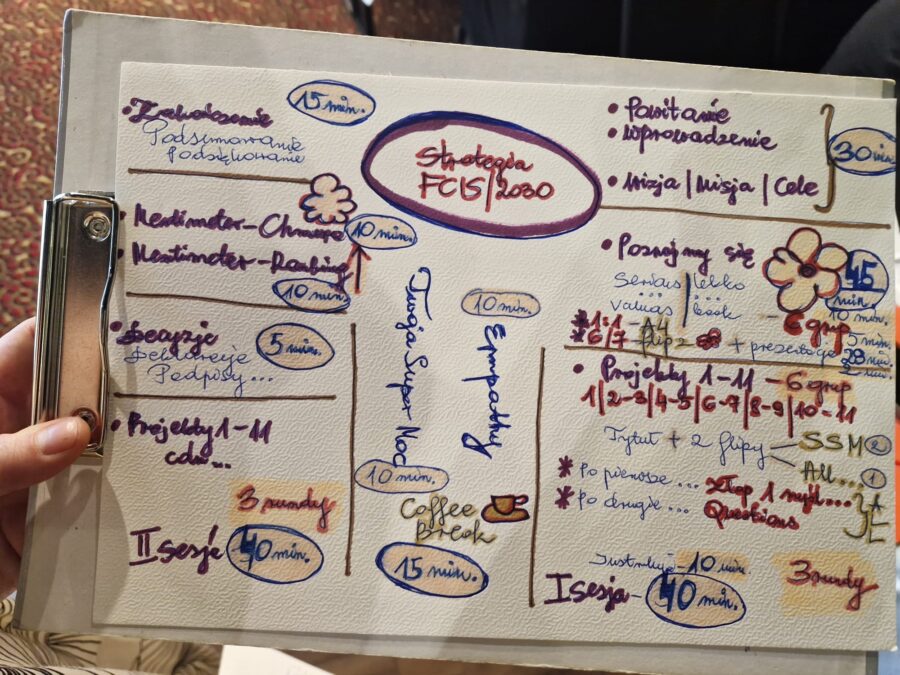 Strategia
FCIS/2030
• Powitanie
• Wprowadzenie
• Wizja | Misja | Cele
30 min
• Poznajmy się
45
min.
Serious | lekko
... | ...
values | book
10 min.
6 grup
* 1:1 - A4
5 min
* 6/7 - flip z + prezentacje
28 min.
2 min.
• Projekty 1-11 - 6 grup
1 | 2-3 | 4-5 | 6-7 | 8-9 | 10-11
Tytuł + 2 flipy
SSM 2
All... 1
* Po pierwsze ...
* Po drugie ...
Questions
10 min.
I sesja - 40 min.
3 rundy
10 min.
Empathy
Twoja Super Moc
10 min.
Coffee
Break
15 min.
• Zakończenie
15 min.
Podsumowanie
Podziękowanie
• Mentimeter - Chmura
10 min.
• Mentimeter - Ranking
10 min.
• Decyzje
5 min.
Deklaracje
Podpisy...
• Projekty 1-11
cdn...
3 rundy
II sesja 40 min.